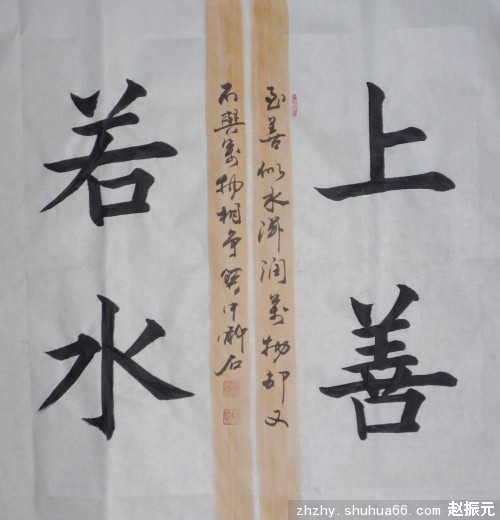 上善
若水
至善似水滋润萬物却又
不與萬物相争
醉石
zhzhy.shuhua66.com 赵振元